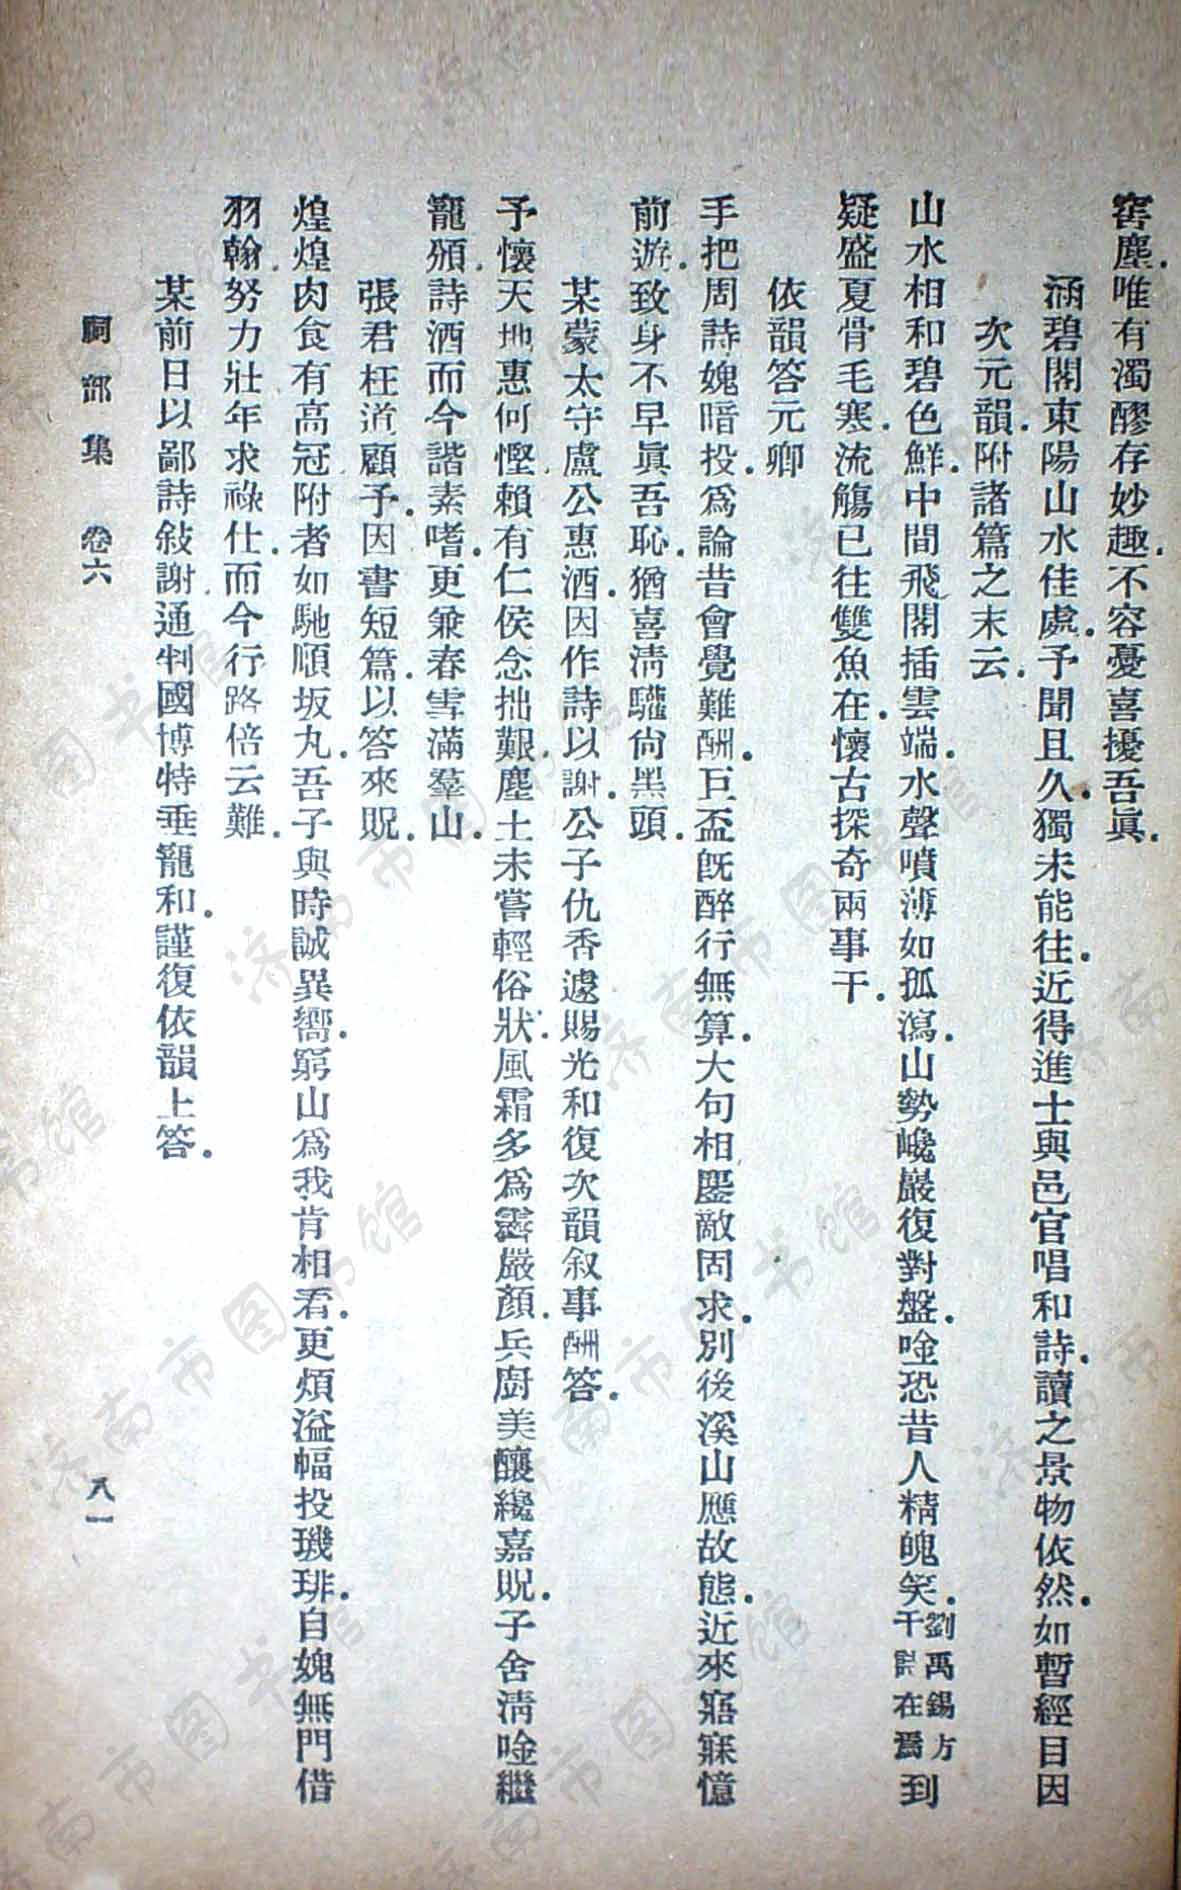 窖塵.唯有濁醪存妙趣.不容憂喜擾吾眞.
涵碧閣東陽山水佳處.予聞且久.獨未能往.近得進士與邑官唱和詩.讀之景物依然.如暫經目因
次元韻.附諸篇之末云.
山水相和碧色鮮.中間飛閣插雲端.水聲噴薄如孤瀉.山勢巉巖復對盤.唫恐昔人精魄笑.劉禹錫方干詩在焉到
疑盛夏骨毛寒.流觴已往雙魚在.懷古探奇兩事干.
依韻答元卿
手把周詩媿暗投.爲論昔會覺難酬.巨盃旣醉行無算.大句相鏖敵固求.別後溪山應故態.近來寤寐憶
前遊.致身不早眞吾恥.猶喜淸驢尙黑頭.
某蒙太守盧公惠酒.因作詩以謝.公子仇香遽賜光和復次韻叙事酬答.
予懷天地惠何慳.賴有仁侯念拙艱.塵土未嘗輕俗狀.風霜多爲霽嚴顏.兵廚美釀纔嘉貺.子舍淸唫繼
寵頒.詩酒而今諧素嗜.更兼春雪滿羣山.
張君枉道顧予.因書短篇.以答來貺.
煌煌肉食有高冠.附者如馳順坂丸.吾子與時誠異嚮.窮山爲我肯相看.更煩溢幅投璣琲.自媿無門借
羽翰.努力壯年求祿仕.而今行路倍云難.
某前日以鄙詩敍謝通判國博特垂寵和.謹復依韻上答.
祠部集 卷六
八一